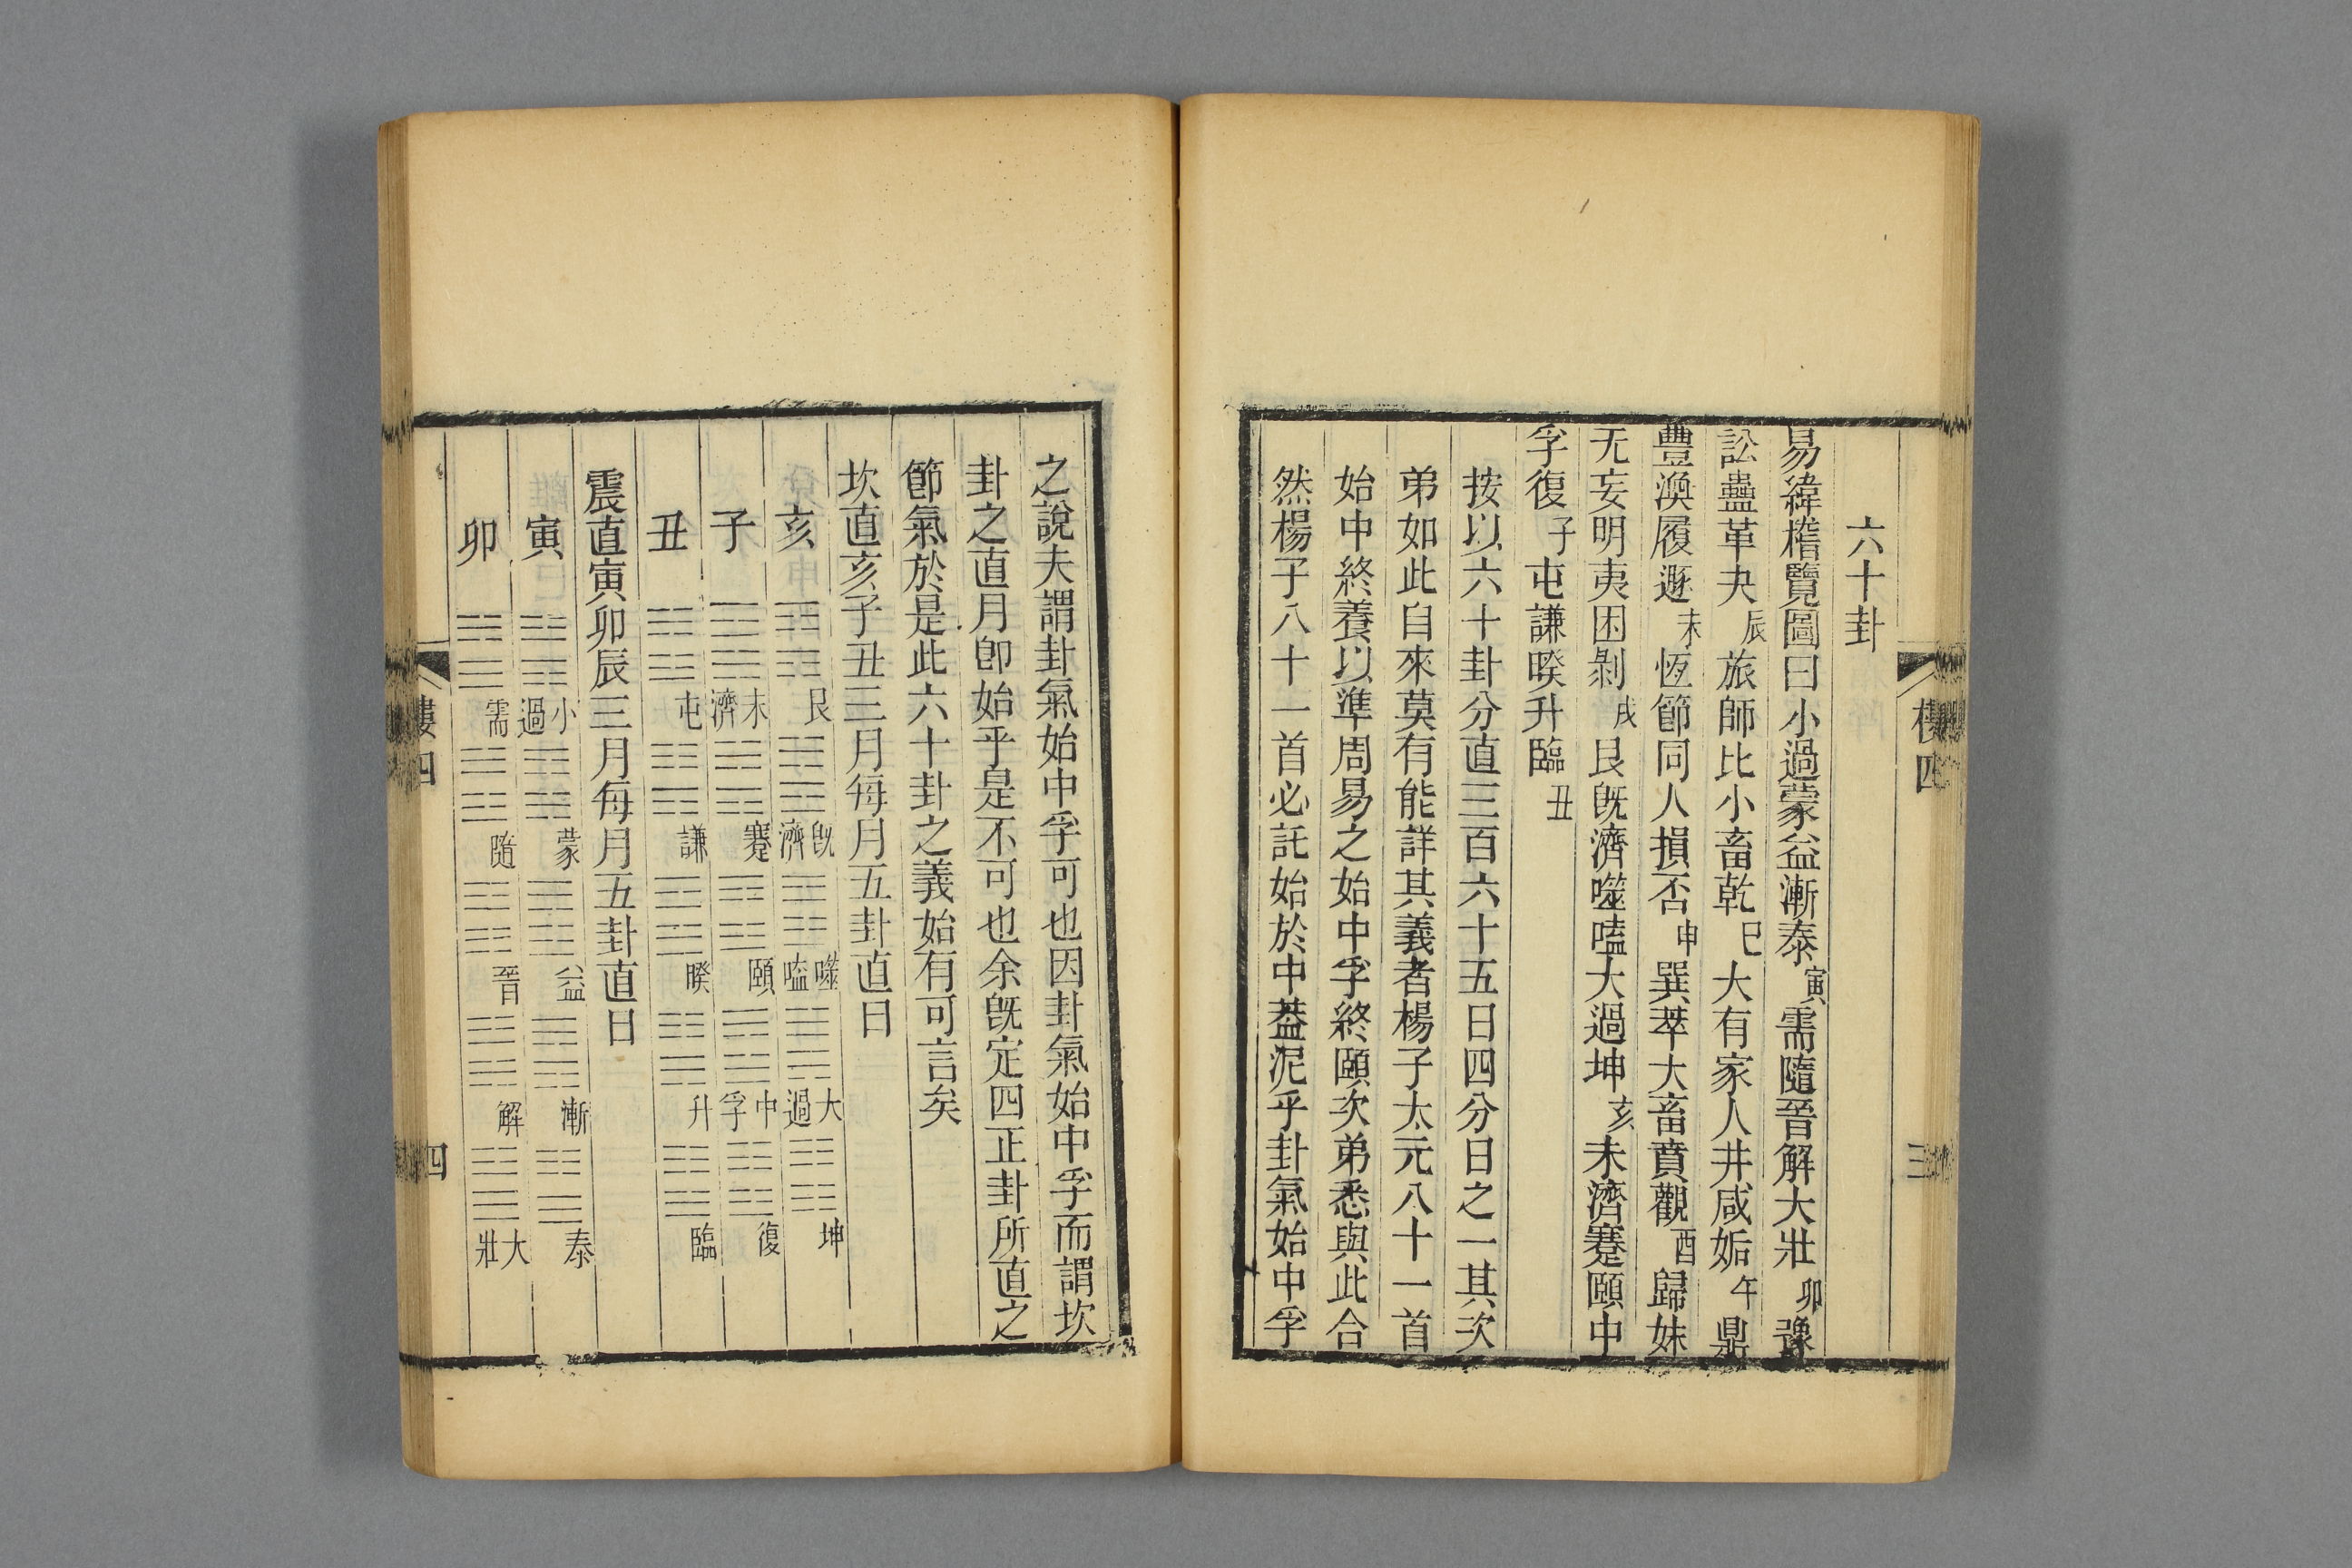 六十卦
易緯稽覽圖曰小過蒙益漸泰寅需隨晉解大壯卯豫
訟蠱革夬辰旅師比小畜乾巳大有家人井咸姤午鼎
豐渙履遯未恆節同人損否申巽萃大畜賁觀酉歸妹
无妄明夷困剝戌艮旣濟噬嗑大過坤亥未濟蹇頤中
孚復子屯謙睽升臨丑
按以六十卦分直三百六十五日四分日之一其次
弟如此自來莫有能詳其義者楊子太元八十一首
始中終養以準周易之始中孚終頤次弟悉與此合
然楊子八十一首必託始於中葢泥乎卦氣始中孚
之說夫謂卦氣始中孚可也因卦氣始中孚而謂坎
卦之直月卽始乎是不可也余旣定四正卦所直之
節氣於是此六十卦之義始有可言矣
坎直亥子丑三月每月五卦直日
亥 艮 旣濟 噬嗑 大過 坤
子 未濟 蹇 頤 中孚 復
丑 屯 謙 睽 升 臨
震直寅卯辰三月每月五卦直日
寅 小過 蒙 益 漸 泰
卯 需 隨 晉 解 大壯
樓四
三
樓四
四